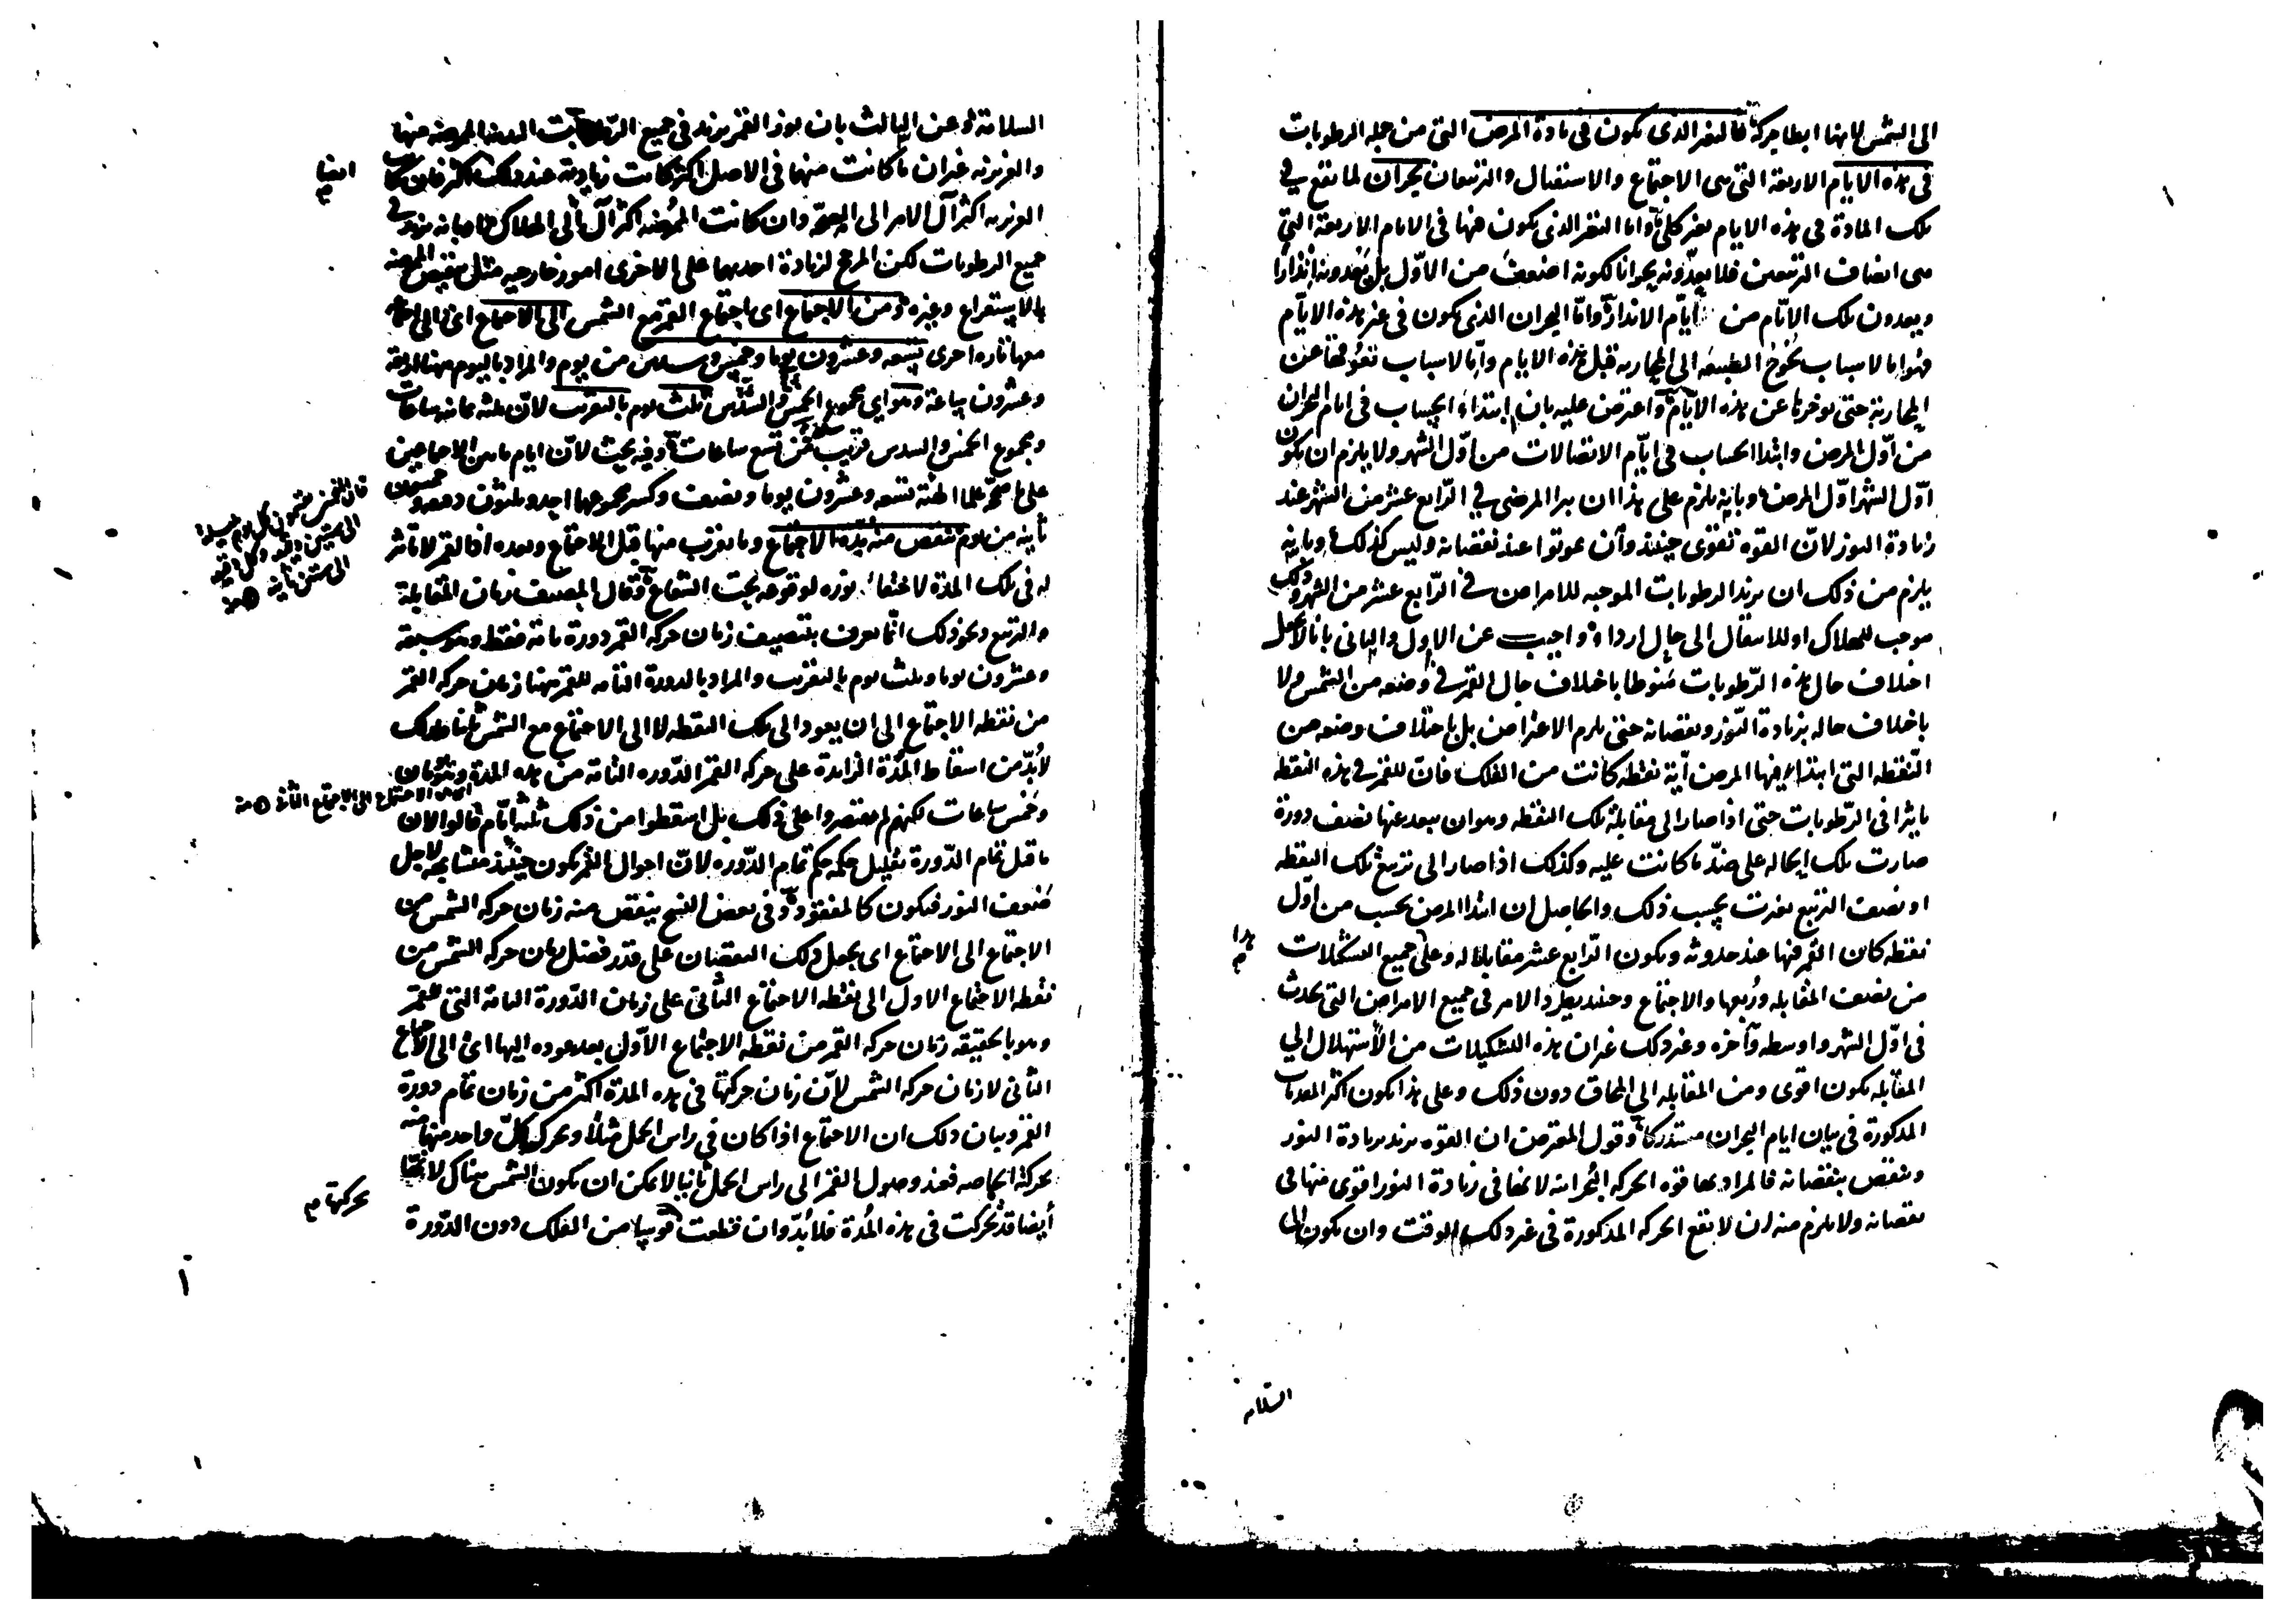 الى الشمس لانها ابطا حركة فالتغير الذى يكون فى مادة المرض التى من جملة الرطوبات
فى هذه الايام الاربعة التى هى الاجتماع والاستقبال والتربيعان بحران لما يقع فى
تلك المادة فى هذه الايام تغير كلى واما التغير الذى يكون فيها فى الايام الاربعة التى
هى انصاف التربيعين فلا يعدونه بحرانا لكونه اضعف من الاول بل يعدونه انذارا
ويعدون تلك الايام من ايام الانذار واما البحران الذى يكون فى غير هذه الايام
فهو اما لاسباب تحوج الطبيعة الى المحاربة قبل هذه الايام واما لاسباب تعوقها عن
المحاربة حتى يوخرها عن هذه الايام واعترض عليه بان ابتداء الحساب فى ايام البحران
من اول المرض وابتدا الحساب فى ايام الاتصالات من اول الشهر ولا يلزم ان يكون
اول الشهر اول المرض وبانه يلزم على هذا ان يبرا المرضى فى الرابع عشر من الشهر عند
زيادة النور لان القوة تقوى حينئذ وان يموتوا عند نقصانه وليس كذلك وبانه
يلزم من ذلك ان يزيد الرطوبات الموجبة للامراض فى الرابع عشر من الشهر وذلك
موجب للهلاك او للانتقال الى حال ارداء واجيب عن الاول والثانى بانا لا نجعل
اختلاف حال هذه الرطوبات منوطا باختلاف حال القمر فى وضعه من الشمس ولا
باختلاف حاله بزيادة النور ونقصانه حتى يلزم الاعتراض بل باختلاف وضعه من
النقطة التى ابتداء فيها المرض اية نقطة كانت من الفلك فان للقمر فى هذه النقطة
تاثيرا فى الرطوبات حتى اذا صار الى مقابلة تلك النقطة وهو ان يبعد عنها نصف دورة
صارت تلك الحالة على ضد ما كانت عليه وكذلك اذا صار الى تربيع تلك النقطة
او نصف التربيع تغيرت بحسب ذلك والحاصل ان ابتدا المرض يحسب من اول
نقطة كان القمر فيها عند حدوثه ويكون الرابع عشر مقابلا له وعلى جميع التشكلات
هذا
من نصف المقابلة وربعها والاجتماع وحينئذ يطرد الامر فى جميع الامراض التى تحدث
فى اول الشهر واوسطه وآخره وغير ذلك غير ان هذه التشكيلات من الاستهلال الى
المقابلة يكون اقوى ومن المقابلة الى المحاق دون ذلك وعلى هذا يكون اكثر المقدمات
المذكورة فى بيان ايام البحران مستدركا وقول المعترض ان القوة يزيد بزيادة النور
وينقص بنقصانه فالمراد بها قوة الحركة البحرانية لانها فى زيادة النور اقوى منها فى
نقصانه ولا يلزم منه ان لا يقع الحركة المذكورة فى غير ذلك الوقت وان يكون الى
السلامة
السلامة وعن الثالث بان نور القمر يزيد فى جميع الرطوبات البدنية المرضية منها
والغريزية غير ان ما كانت منها فى الاصل اكثر كانت زيادته عند ذلك اكثر فان كانت
ايضا
الغريزية اكثر آل الامر الى الصحة وان كانت المرضية اكثر آل الى الهلاك
جميع الرطوبات لكن المرجح لزيادة احديهما على الاخرى امور خارجية مثل تنقيص المرضية
بالاستفراغ وغيره ومن الاجتماع اى اجتماع القمر مع الشمس الى الاجتماع اى الى اجتماعه
معها تارة اخرى تسعة وعشرون يوما وخمس وسدس من يوم والمراد باليوم ههنا اربعة
وعشرون ساعة وهو اى مجموع الخمس والسدس ثلث يوم بالتقريب لان ثلثه ثمانية ساعات
ومجموع الخمس والسدس قريب من تسع ساعات وفيه بحث لان ايام ما بين الاجتماعين
على ما صححه علماء الهيئة تسعة وعشرون يوما ونصف وكسر مجموعها احد وثلثون دقيقة وخمسون
ثانية من يوم تنقص منه مدة الاجتماع وما يقرب منها قبل الاجتماع وبعده اذ القمر لا تاثير
له فى تلك المدة لاختفاء نوره لوقوعه تحت الشعاع وقال المصنف زمان المقابلة
والتربيع ونحو ذلك انما يعرف بتنصيف زمان حركة القمر دورة تامة فقط وهو سبعة
وعشرون يوما وثلث يوم بالتقريب والمراد بالدورة التامة للقمر ههنا زمان حركة القمر
من نقطة الاجتماع الى ان يعود الى تلك النقطة لا الى الاجتماع مع الشمس ثانيا فلذلك
لابد من اسقاط المدة الزايدة على حركة القمر الدورة التامة من هذه المدة وهو يومان
اى من الاجتماع الى الاجتماع الثانى منه
وخمس ساعات لكنهم لم يقتصروا على ذلك بل اسقطوا من ذلك ثلثة ايام قالوا لان
ما قبل تمام الدورة بقليل حكمه حكم تمام الدورة لان احوال القمر يكون حينئذ متشابهة لاجل
ضعف النور فيكون كالمفقود وفى بعض النسخ ينقص منه زمان حركة الشمس من
الاجتماع الى الاجتماع اى يجعل ذلك النقصان على قدر فضل زمان حركة الشمس من
نقطة الاجتماع الاول الى نقطة الاجتماع الثانى على زمان الدورة التامة التى للقمر
وهو بالحقيقة زمان حركة القمر من نقطة الاجتماع الاول بعد عوده اليها اى الى الاجتماع
الثانى لا زمان حركة الشمس لان زمان حركتها فى هذه المدة اكثر من زمان تمام دورة
القمر وبيان ذلك ان الاجتماع اذا كان فى راس الحمل مثلا وتحرك كل واحد منهما منه
بحركته الخاصة فعند وصول القمر الى راس الحمل ثانيا لا يمكن ان يكون الشمس هناك لانها
بحركتها
ايضا قد تحركت فى هذه المدة فلابد وان قطعت قوسا من الفلك دون الدورة